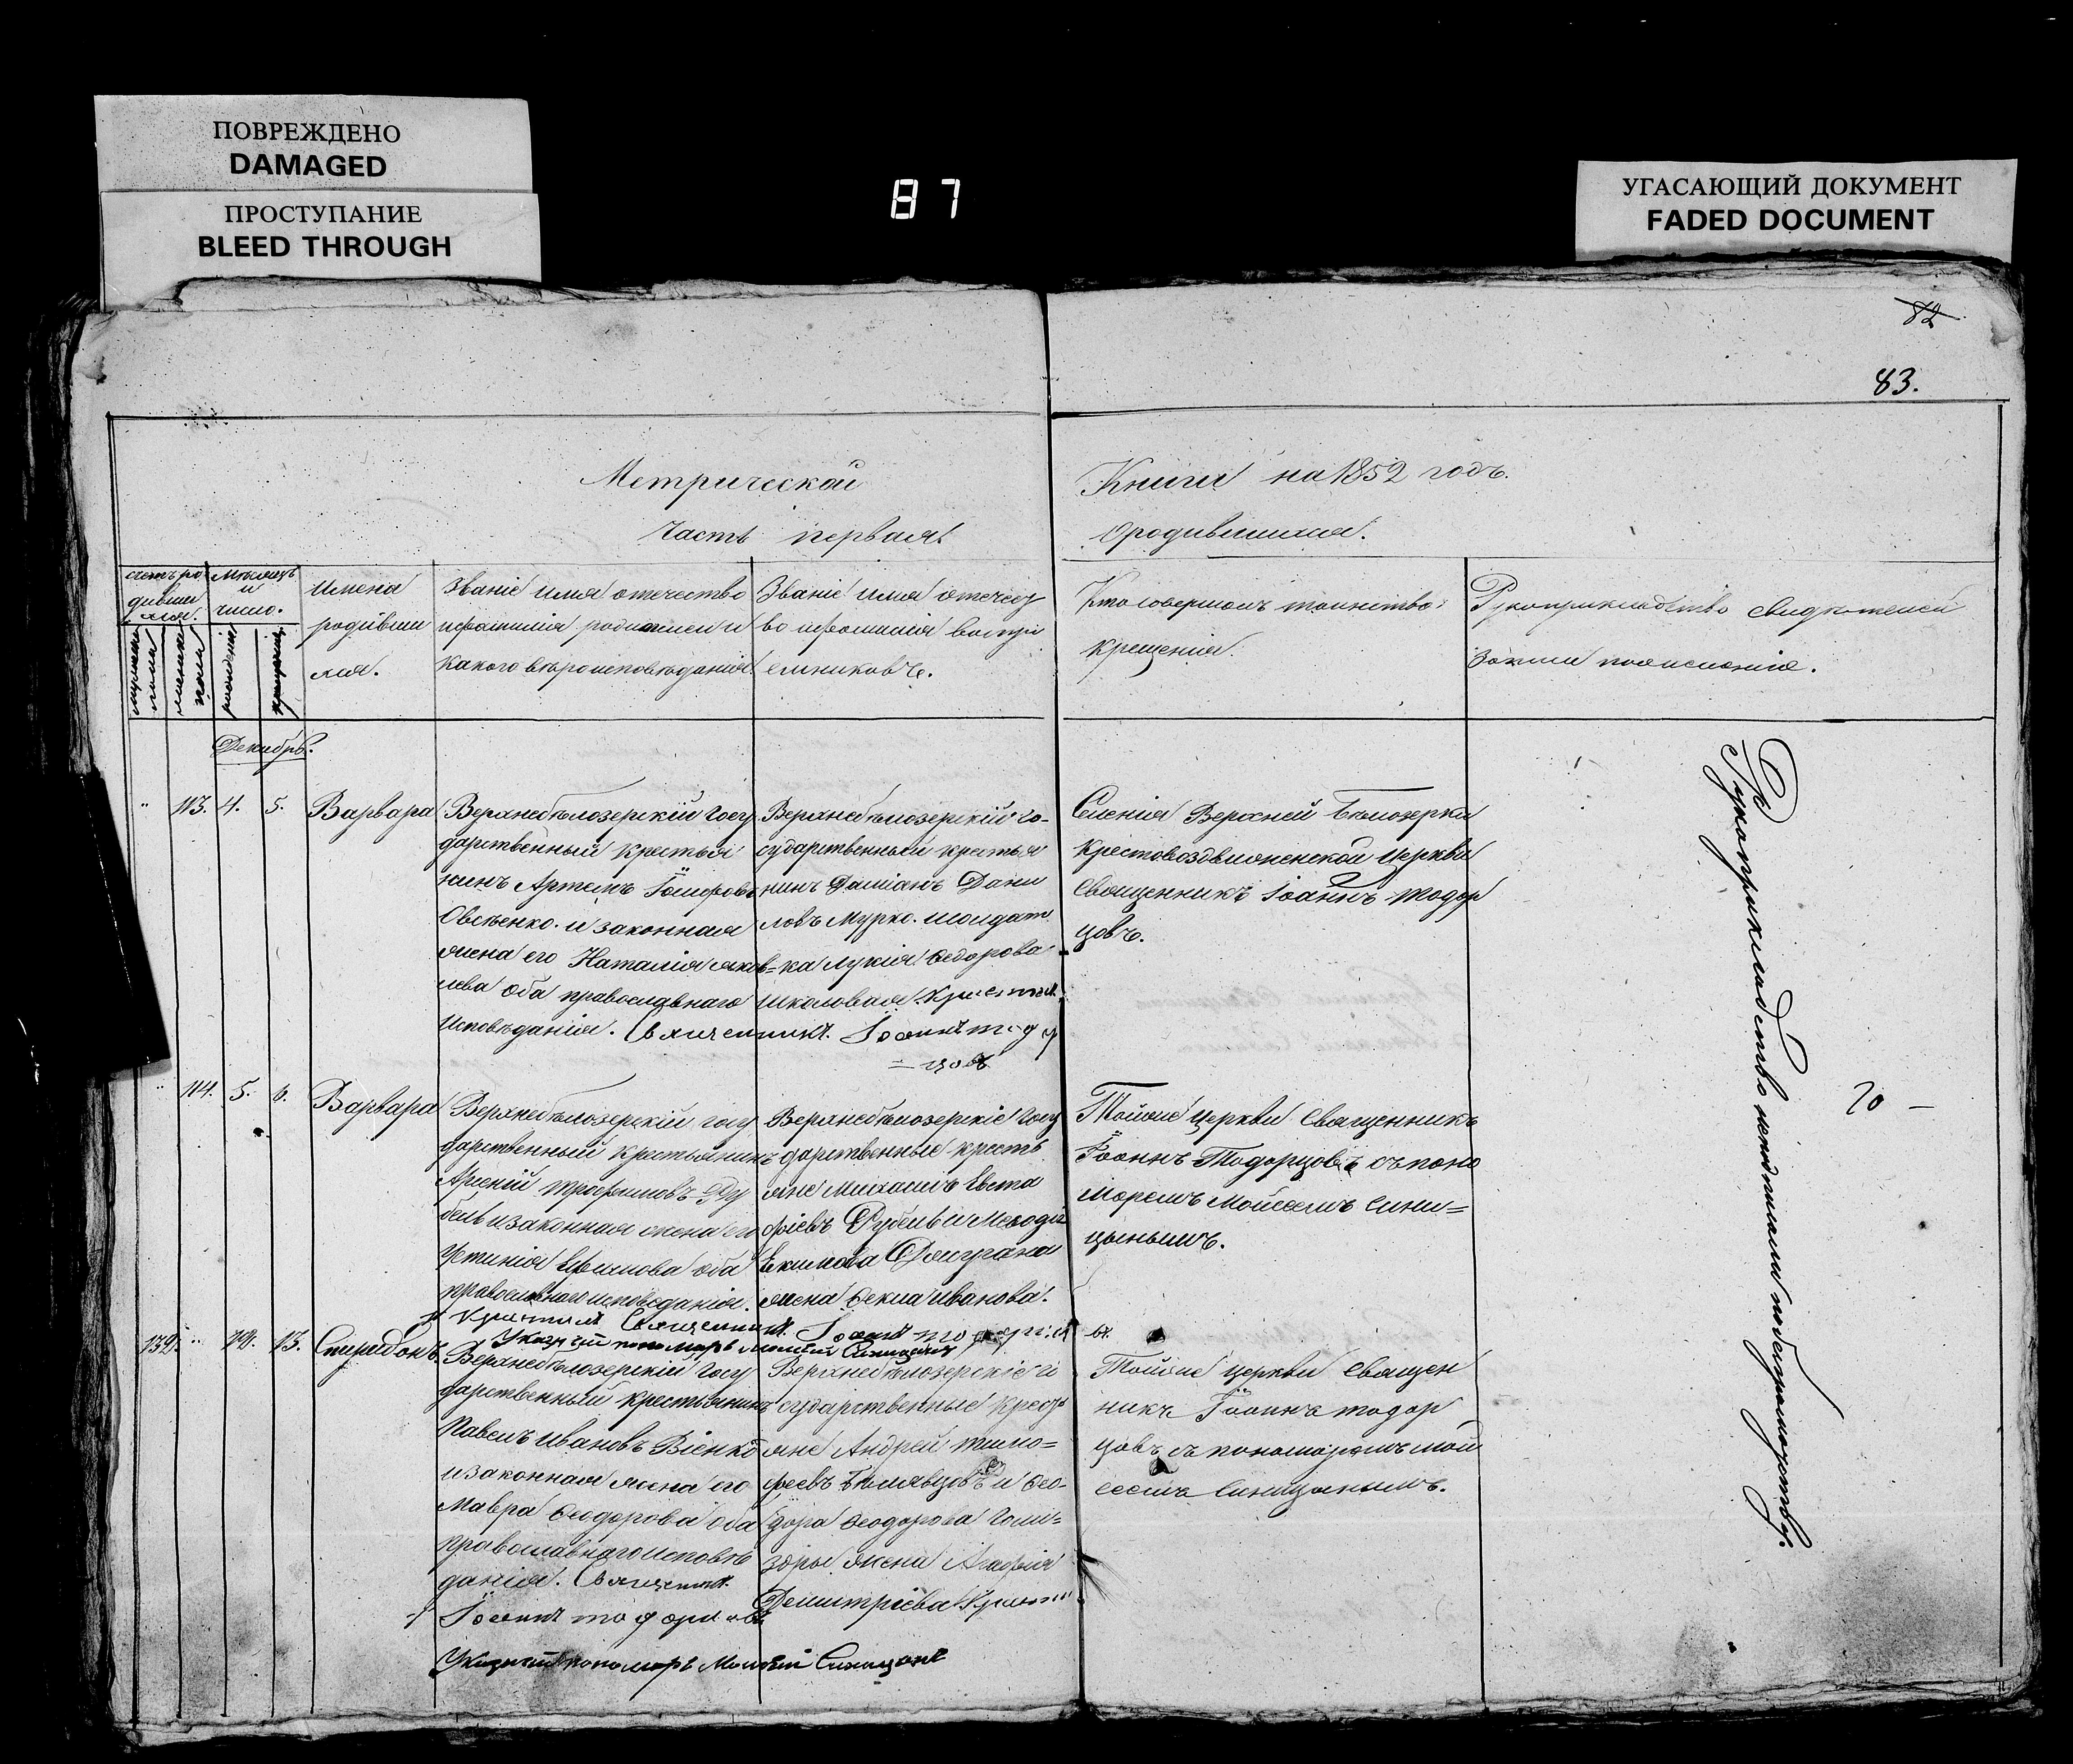 ПОВРЕЖДЕНО
DAMAGED
ПРОСТУПАНИЕ
BLEED THROUGH
87
УГАСАЮЩИЙ ДОКУМЕНТ
FADED DOCUMENT
82
83.
Метрической
Часть первая.
Книги на 1852 годъ.
о родившихся.
счетъ ро
дивши
хся.
мужеска
пола
женска
пола
Мѣсяцъ
и
число.
рожденія
крещенія
Имена
родивши
хся.
Званіе имя отечество
и фамилія родителей и
какого вѣроисповѣданія.
Званіе имя отечест
во и фамилія воспрі
емниковъ.
Кто совершалъ таинство
крещенія.
Рукоприкладство свидѣтелей
записи по желанію.
Декабрь.
" 113. 4. 5. Варвара
Верхнебѣлозерскій госу
дарственный крестья
нинъ Артемъ
Овсѣенко. и законная
жена его Наталія яков
лева оба православнаго
исповѣданія. Священникъ Іоаннъ тодор
=цовъ
Верхнебѣлозерскій го-
сударственный крестья
нинъ Даміанъ Дани
ловъ Мурко. и солдат
ка Лукія Ѳедорова
Школовая. Крестил.
Селенія Верхней Бѣлозерки
Крестовоздвиженской церкви
священникъ Іоаннъ тодор
цовъ.
" 114. 5. 6. Варвара
Верхнебѣлозерскій госу
дарственный крестьянинъ
Арсеній трофимовъ Ру
бель и законная жена его
Устинія Ефимова оба
православнаго исповѣданія.
Крестилъ Священникъ Іоаннъ тодорцовъ.
Указный пономарь Моисей Синицынъ
Верхнебѣлозерскіе госу
дарственные кресть
яне Михаилъ Евста
фіевъ Рубель и
Екимова
жена Ѳекла Иванова.
Тойже церкви священникъ
Іоаннъ Тодорцовъ съ поно
маремъ Мойсеемъ Сини=
цынымъ.
139. " 12. 13. Спиридонъ.
Верхнебѣлозерскій госу
дарственный крестьянинъ
Павелъ Ивановъ
и законная жена его
Мавра Ѳеодорова оба
православнаго исповѣ
данія. Священникъ
Іоаннъ тодорцовъ
Указный пономарь Моисей Синицынъ
Верхнебѣлозерскіе го
сударственные кресть
яне Андрей тимо=
феевъ и Ѳео-
дора Ѳеодорова
жена Агафія
Димитріева. Крестил
Тойже церкви священ
никъ Іоаннъ тодор
цовъ съ пономаремъ мой
сеемъ Синицынымъ.
Рукоприкладство
неграмотству.
20 –